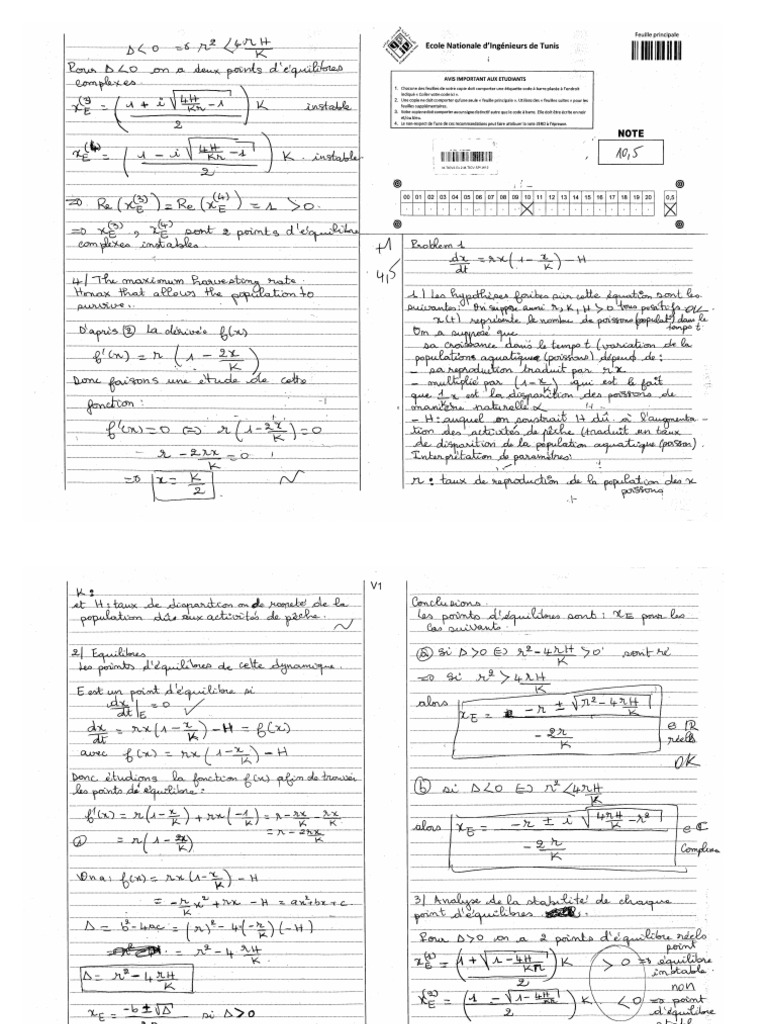 Δ < 0 ⇒ r² < 4rH/K
Pour Δ<0 on a deux points d'équilibres
complexes.
x_E^(3) = ((1 + i√(4H/Kr − 1))/2) K instable
x_E^(4) = ((1 − i√(4H/Kr − 1))/2) K. instable
⇒ Re(x_E^(3)) = Re(x_E^(4)) = 1 > 0.
⇒ x_E^(3), x_E^(4) sont 2 points d'équilibre
complexes instables.
4/ The maximum harvesting rate.
Hmax that allows the population to
survive.
D'après ② La dérivée f(x)
f'(x) = r(1 − 2x/K)
Donc faisons une étude de cette
fonction:
f'(x)=0 ⇔ r(1−2x/K)=0
r − 2rx/K = 0
⇒ x = K/2
Ecole Nationale d'Ingénieurs de Tunis
Feuille principale
AVIS IMPORTANT AUX ETUDIANTS
NOTE
10,5
00 01 02 03 04 05 06 07 08 09 10 11 12 13 14 15 16 17 18 19 20 0,5
+1
4,5
Problem 1
dx/dt = rx(1 − x/K) − H
1/ Les hypothèses faites sur cette équation sont les
suivantes: On suppose aussi r, K, H > 0 tous positifs
x(t) représente le nombre de poissons (populat°) dans le
temps t
On a supposé que
sa croissance dans le temps t (variation de la
populations aquatique (poissons) dépend de:
− sa reproduction traduit par rx
− multiplié par (1−x/K) qui est le fait
que 1/K x est la disparition des poissons de
manière naturelle
− H: auquel on soustrait H dû à l'augmenta-
tion des activités de pêche (traduit en taux
de disparition de la population aquatique (poisson).
Interprétation de paramètres:
r: taux de reproduction de la population des x
poissons
V1
K:
et H: taux de disparition ou de rareté de la
population dûe aux activités de pêche.
2/ Equilibres
Les points d'équilibres de cette dynamique.
E est un point d'équilibre si
dx/dt|_E = 0
dx/dt = rx(1−x/K) − H = f(x)
avec f(x) = rx(1−x/K) − H
Donc étudions la fonction f(x) afin de trouver
les points d'équilibre:
f'(x) = r(1−x/K) + rx(−1/K) = r − rx/K − rx/K
① = r(1−2x/K) = r − 2rx/K
On a: f(x) = rx(1−x/K) − H
= −r/K x² + rx − H = ax²+bx+c.
Δ = b²−4ac = (r)² − 4(−r/K)(−H)
= r² − 4 rH/K
Δ = r² − 4 rH/K
x_E = −b±√Δ si Δ>0
Conclusions.
Les points d'équilibres sont: x_E pour les
cas suivants.
ⓐ si Δ>0 ⇔ r² − 4rH/K > 0 sont ré
⇒ si r² > 4rH/K
alors x_E = (−r ± √(r² − 4rH/K))/(−2r/K) ∈ ℝ
réels
OK
ⓑ si Δ<0 ⇔ r² < 4rH/K
alors x_E = (−r ± i√(4rH/K − r²))/(−2r/K) ∈ ℂ
Complexe
3/ Analyse de la stabilité de chaque
point d'équilibres
Pour Δ>0 on a 2 points d'équilibre réels
x_E^(1) = ((1 + √(1−4H/Kr))/2) K > 0 ⇒ point équilibre
instable
non
x_E^(2) = ((1 − √(1−4H/Kr))/2) K < 0 ⇒ point
d'équilibre